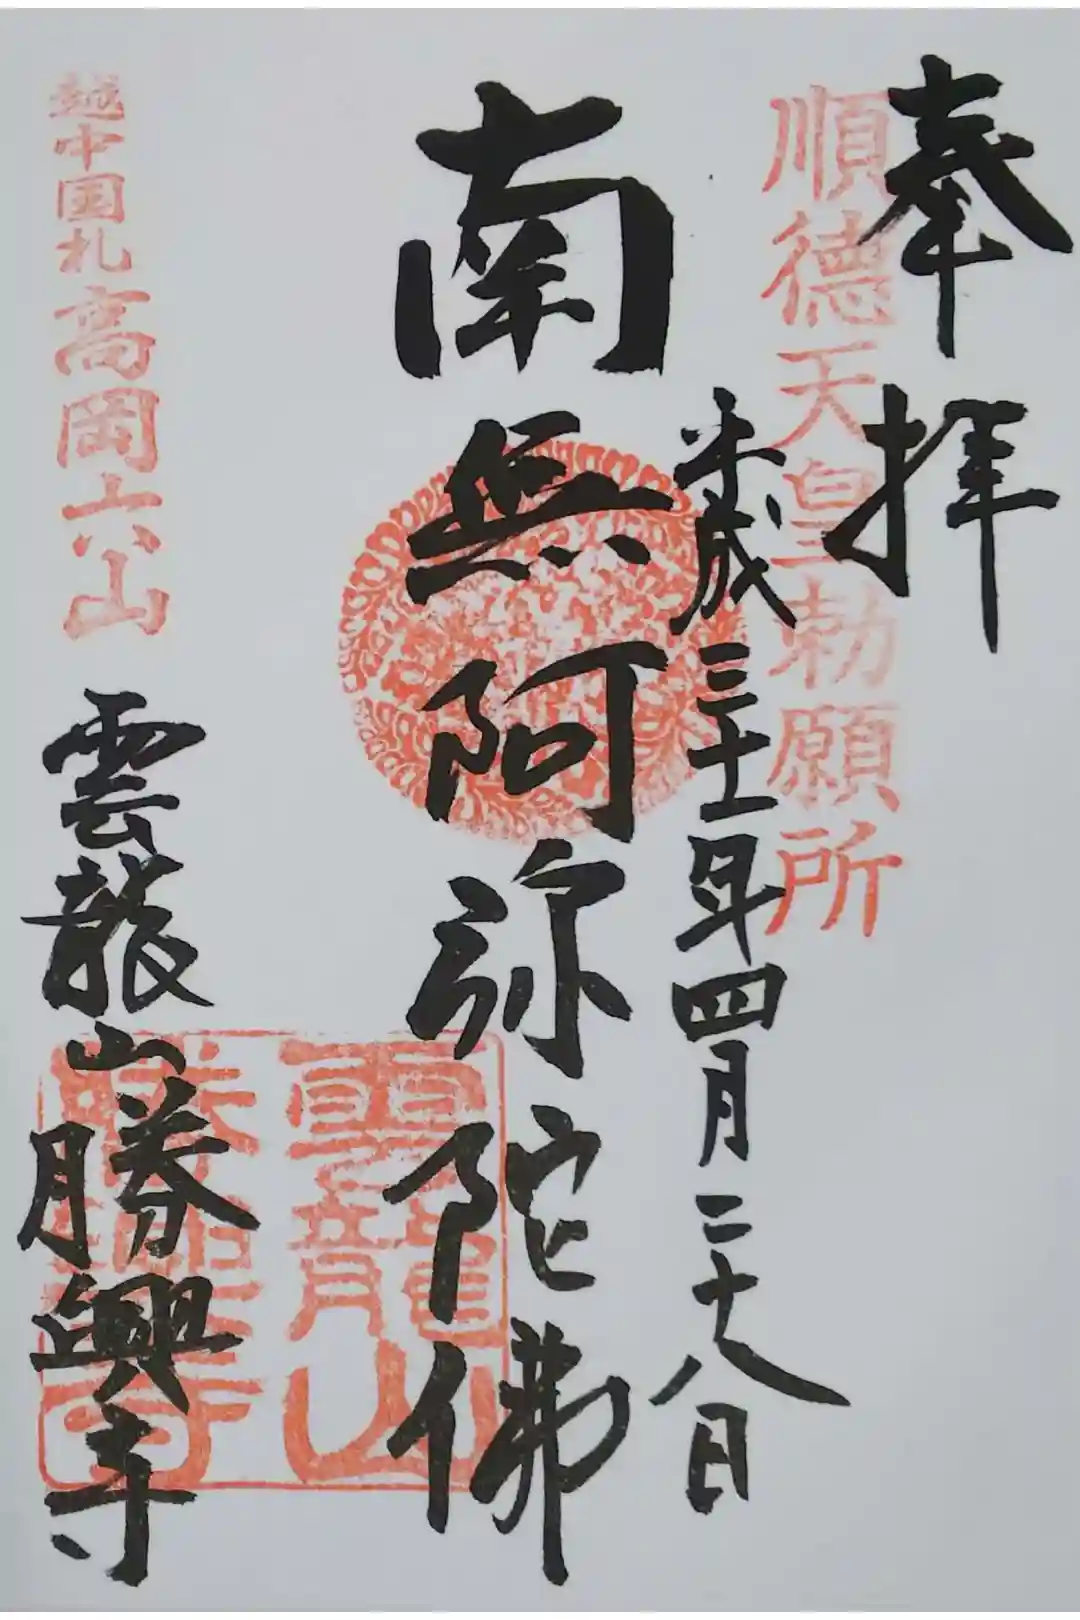 奉拝
順徳天皇勅願所
平成三十一年四月二十八日
南無阿弥陀佛
雲龍山
勝興寺
越中国札 高岡六山
雲龍山勝興寺